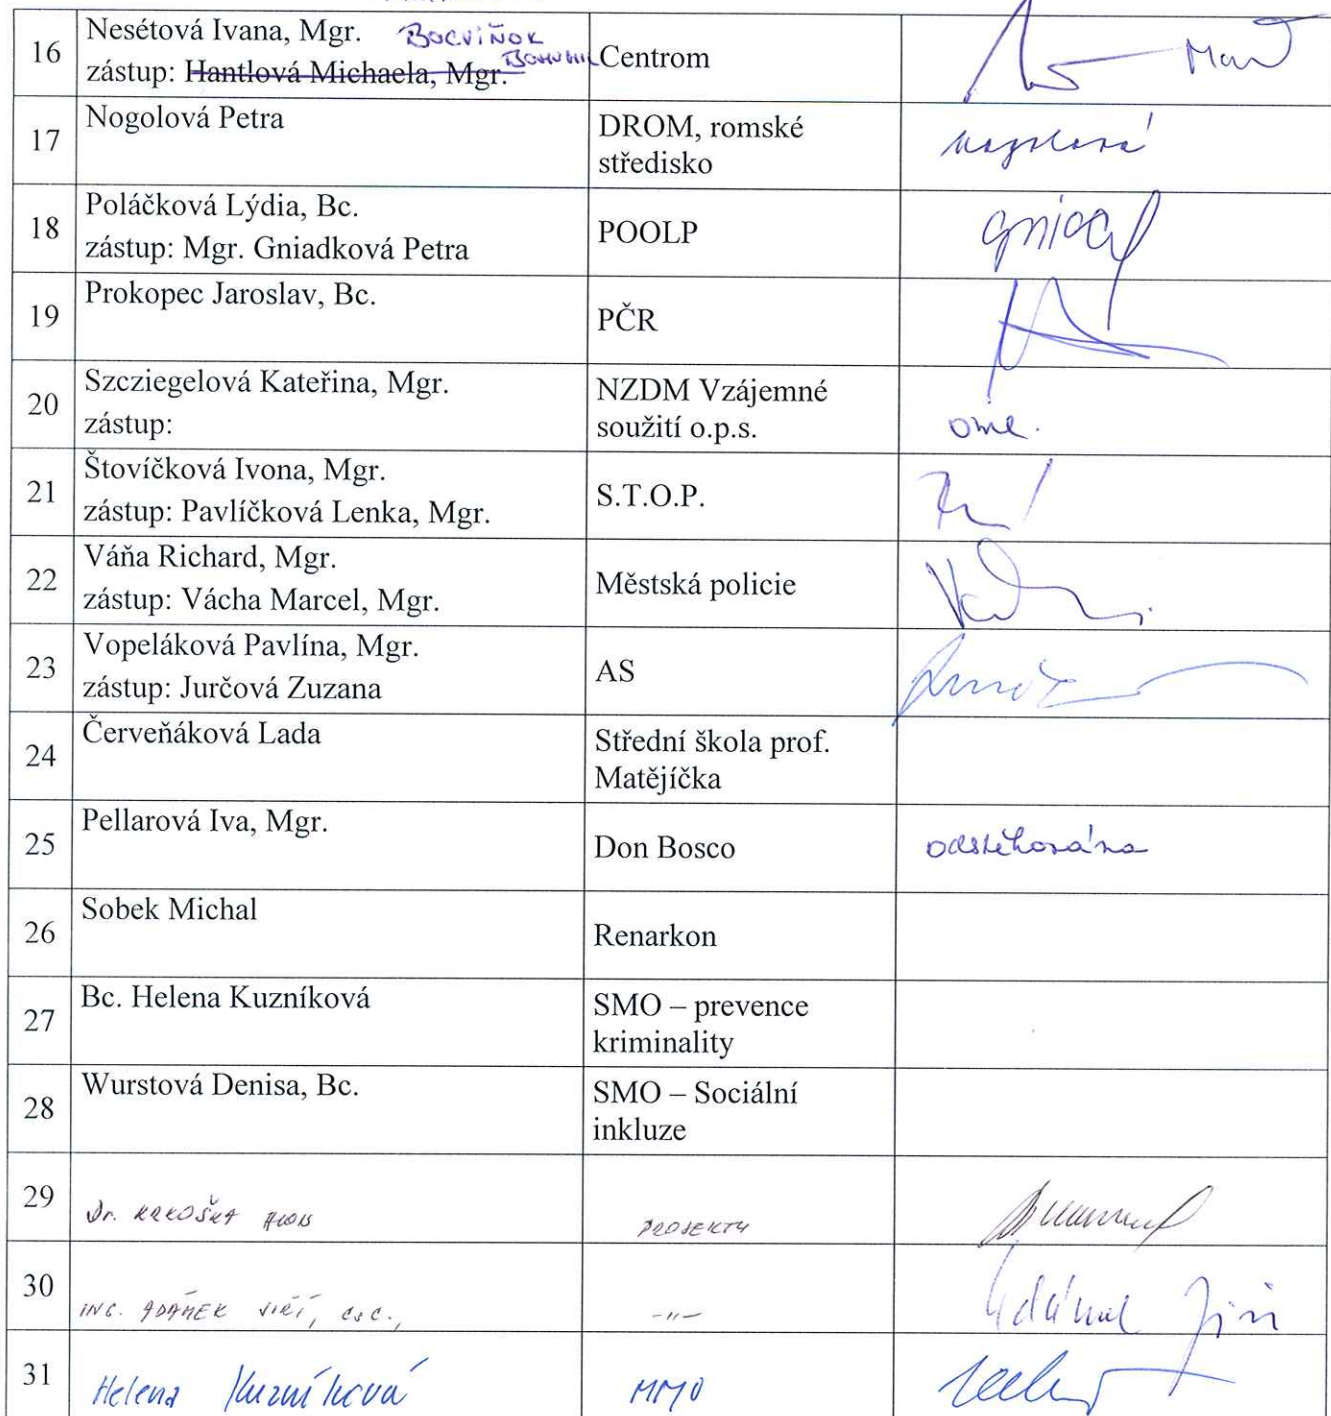 16
Nesétová Ivana, Mgr. BOCVIŇOK
zástup: Hantlová Michaela, Mgr. BOHUMIL
Centrom
17
Nogolová Petra
DROM, romské
středisko
Nogolová
18
Poláčková Lýdia, Bc.
zástup: Mgr. Gniadková Petra
POOLP
19
Prokopec Jaroslav, Bc.
PČR
20
Szcziegelová Kateřina, Mgr.
zástup:
NZDM Vzájemné
soužití o.p.s.
21
Štovíčková Ivona, Mgr.
zástup: Pavlíčková Lenka, Mgr.
S.T.O.P.
22
Váňa Richard, Mgr.
zástup: Vácha Marcel, Mgr.
Městská policie
23
Vopeláková Pavlína, Mgr.
zástup: Jurčová Zuzana
AS
24
Červeňáková Lada
Střední škola prof.
Matějíčka
25
Pellarová Iva, Mgr.
Don Bosco
odstěhována
26
Sobek Michal
Renarkon
27
Bc. Helena Kuzníková
SMO – prevence
kriminality
28
Wurstová Denisa, Bc.
SMO – Sociální
inkluze
29
Dr. KRKOŠKA ALOIS
PROJEKTY
30
ING. ADÁMEK JIŘÍ, CSC.,
-"-
Adámek Jiří
31
Helena Kuzníková
MMO